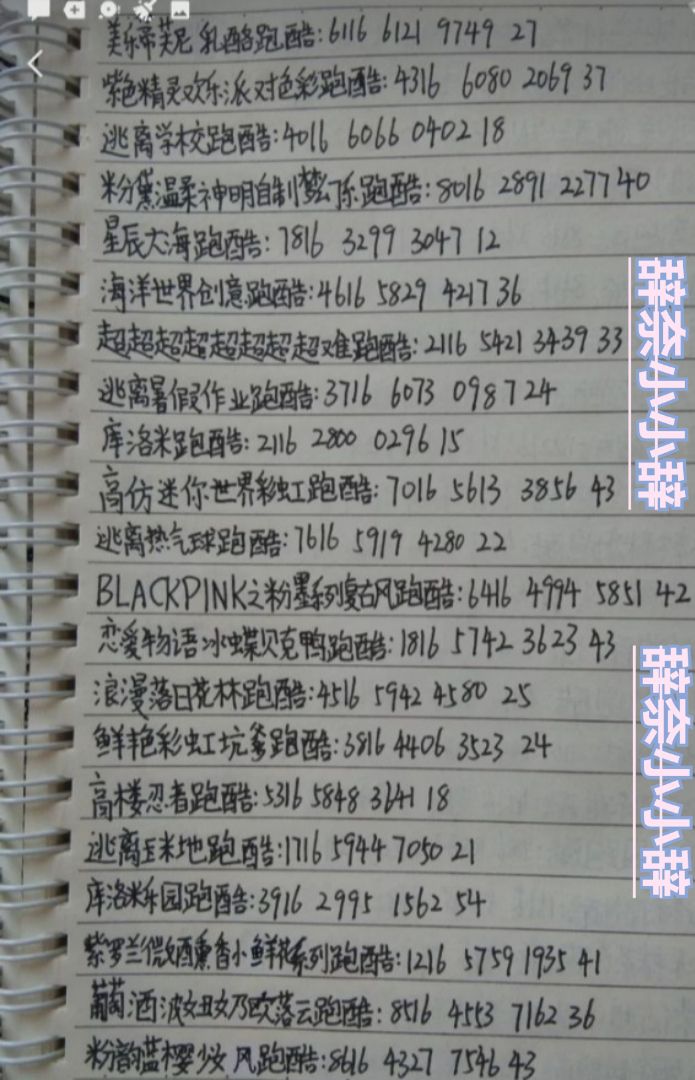 美乐蒂芙尼乳酪跑酷:6116 6121 9749 27
紫色精灵欢乐派对色彩跑酷:4316 6080 2069 37
逃离学校跑酷:4016 6066 0402 18
粉黛温柔神明自制梦幻乐跑酷:8016 2891 2277 40
星辰大海跑酷:7816 3299 3047 12
海洋世界创意跑酷:4616 5829 4217 36
超超超超超超超超难跑酷:2116 5421 3439 33
逃离暑假作业跑酷:3716 6073 0987 24
库洛米跑酷:2116 2800 0296 15
高仿迷你世界彩虹跑酷:7016 5613 3856 43
逃离热气球跑酷:7616 5919 4280 22
BLACKPINK之粉墨系列复古风跑酷:6416 4994 5851 42
恋爱物语冰蝶贝克鸭跑酷:1816 5742 3623 43
浪漫落日花林跑酷:4516 5942 4580 25
鲜艳彩虹坑爹跑酷:3816 4406 3523 24
高楼忍者跑酷:5316 5848 3641 18
逃离玉米地跑酷:1716 5944 7050 21
库洛米乐园跑酷:3916 2995 1562 54
紫罗兰微醺香小鲜花系列跑酷:1216 5759 1935 41
葡萄酒波妞奶欧落云跑酷:8516 4553 7162 36
粉韵蓝樱少女风跑酷:8616 4327 7546 43
辞奈小小辞
辞奈小小辞